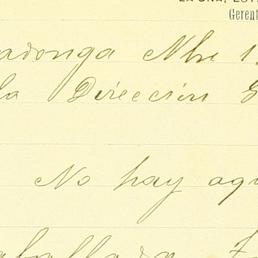 Gerent
adonga Nbre 1
la Direccion G
No hay aqu